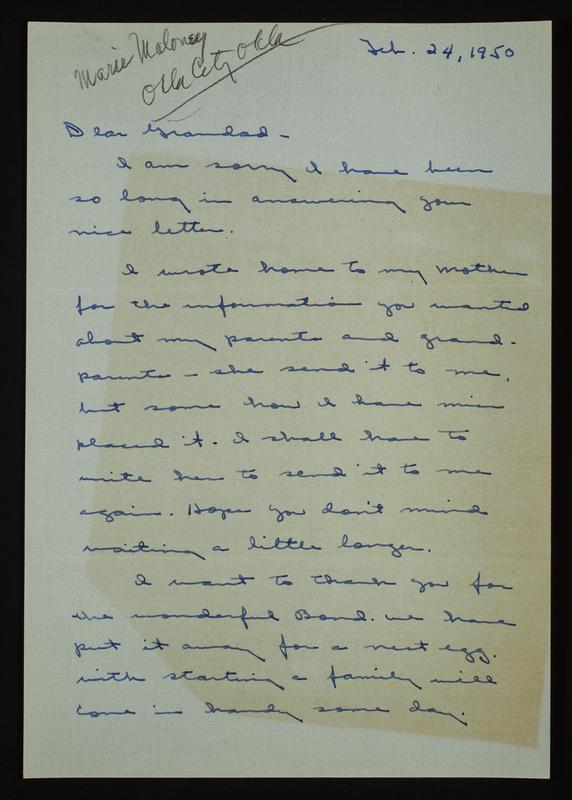 Marie Maloney
Okla City Okla
Feb. 24, 1950
Dear Grandad -
I am sorry I have been
so long in answering your
nice letter.
I wrote home to my mother
for the information you wanted
about my parents and grand-
parents - she send it to me,
but some how I have miss
placed it. I shall have to
write her to send it to me
again. Hope you don't mind
waiting a little longer.
I want to thank you for
the wonderful Bond. we have
put it away for a nest egg.
with starting a family will
come in handy some day.